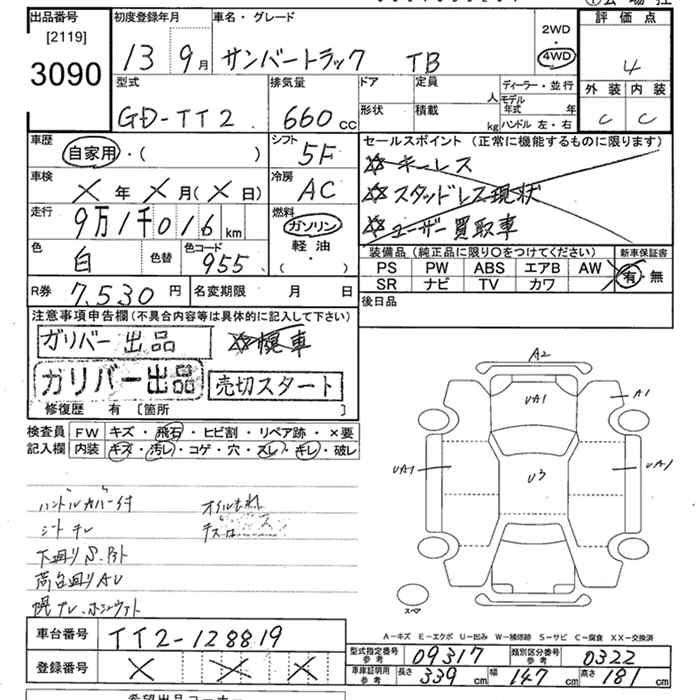 出品番号 初度登録年月 車名・グレード 評価点
[2119] 2WD
3090 13 9月 サンバートラック TB ・ 4WD 4
型式 排気量 ドア 定員 人 ディーラー・並行 外装 内装
モデル年式 年
GD-TT2 660cc 形状 積載 kg ハンドル 左・右 C C
車歴 シフト セールスポイント (正常に機能するものに限ります)
自家用・( ) 5F キーレス
車検 冷房 スタッドレス現状
X 年 X 月(X 日) AC ユーザー買取車
走行 燃料
9万1千016km ガソリン
色 色替 色コード 軽油 装備品 (純正品に限り○をつけてください) 新車保証書
白 955 ( ・ ) PS PW ABS エアB AW 有・無
R券 7,530円 名変期限 月 日 SR ナビ TV カワ
注意事項申告欄(不具合内容等は具体的に記入して下さい) 後日品
ガリバー出品 幌車
ガリバー出品 売切スタート
修復歴 有 [箇所 ]
検査員 FW キズ・飛石・ヒビ割・リペア跡・×要
記入欄 内装 キズ・汚レ・コゲ・穴・スレ・キレ・破レ
A2
UA1 A1
UA1 U3 UA1
ハンドルカバー付 オイルもれ
シートキレ
下廻りS.
荷台廻りAU
スペア
A-キズ E-エクボ U-凹み W-補修跡 S-サビ C-腐食 XX-交換済
車台番号 TT2-128819
型式指定番号 参考 09317 類別区分番号 参考 0322
登録番号 X X X
車庫証明用 参考 長さ 339cm 幅 147cm 高さ 181cm
希望出品コーナー